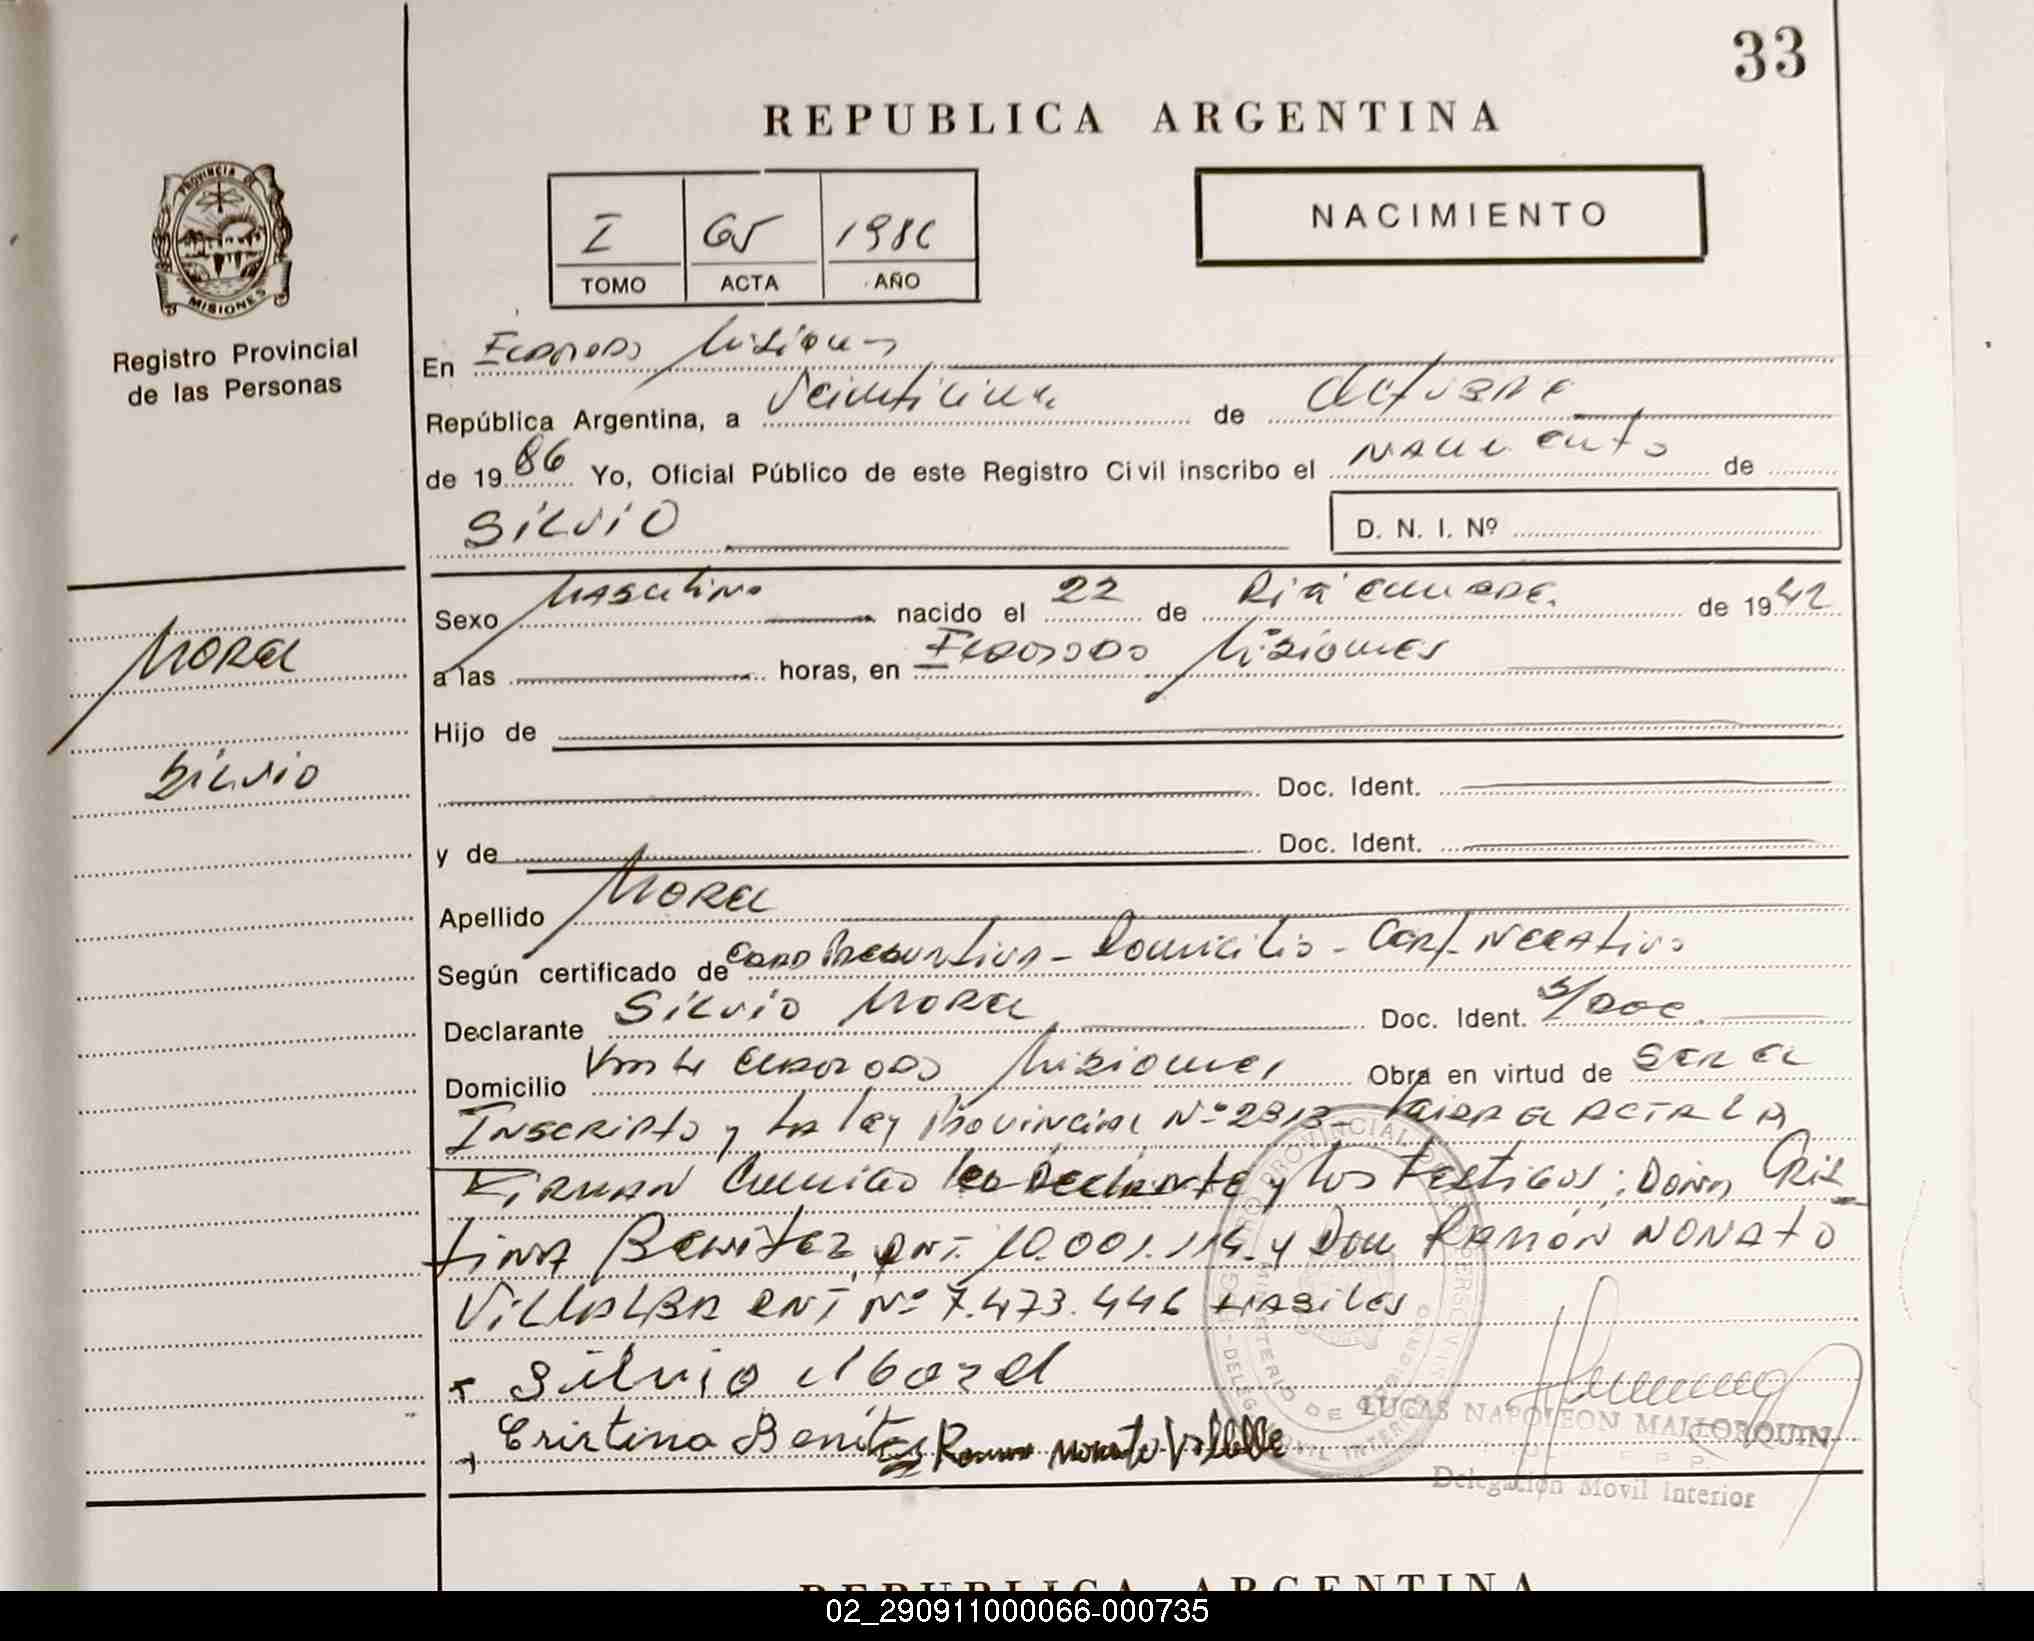 33
REPUBLICA ARGENTINA
PROVINCIA DE
MISIONES
Registro Provincial
de las Personas
I 65 1986
TOMO ACTA AÑO
NACIMIENTO
En Eldorado Misiones
República Argentina, a Veinticinco de Octubre
de 1986 Yo, Oficial Público de este Registro Civil inscribo el Nacimiento de
SILVIO
D. N. I. Nº
Sexo Masculino nacido el 22 de Diciembre de 1942
a las horas, en Eldorado Misiones
Morel
Silvio
Hijo de
Doc. Ident.
y de Doc. Ident.
Apellido Morel
Según certificado de Edad Presuntiva - Domicilio - Cert. Negativo
Declarante Silvio Morel Doc. Ident. S/Doc.
Domicilio Eldorado Misiones Obra en virtud de SER EL
Inscripto y la ley Provincial Nº 2313- Leida el Acta la
Firman Conmigo el Declarante y los Testigos; Doña Cris
tina Benitez, DNI. 10.001.114 y Don Ramón Nonato
Villalba DNI Nº 7.473.446 Habiles
Silvio Morel
Cristina Benitez Ramon Nonato Villalba
LUCAS NAPOLEON MALLORQUIN
Delegación Movil Interior
REPUBLICA ARGENTINA
02_290911000066-000735